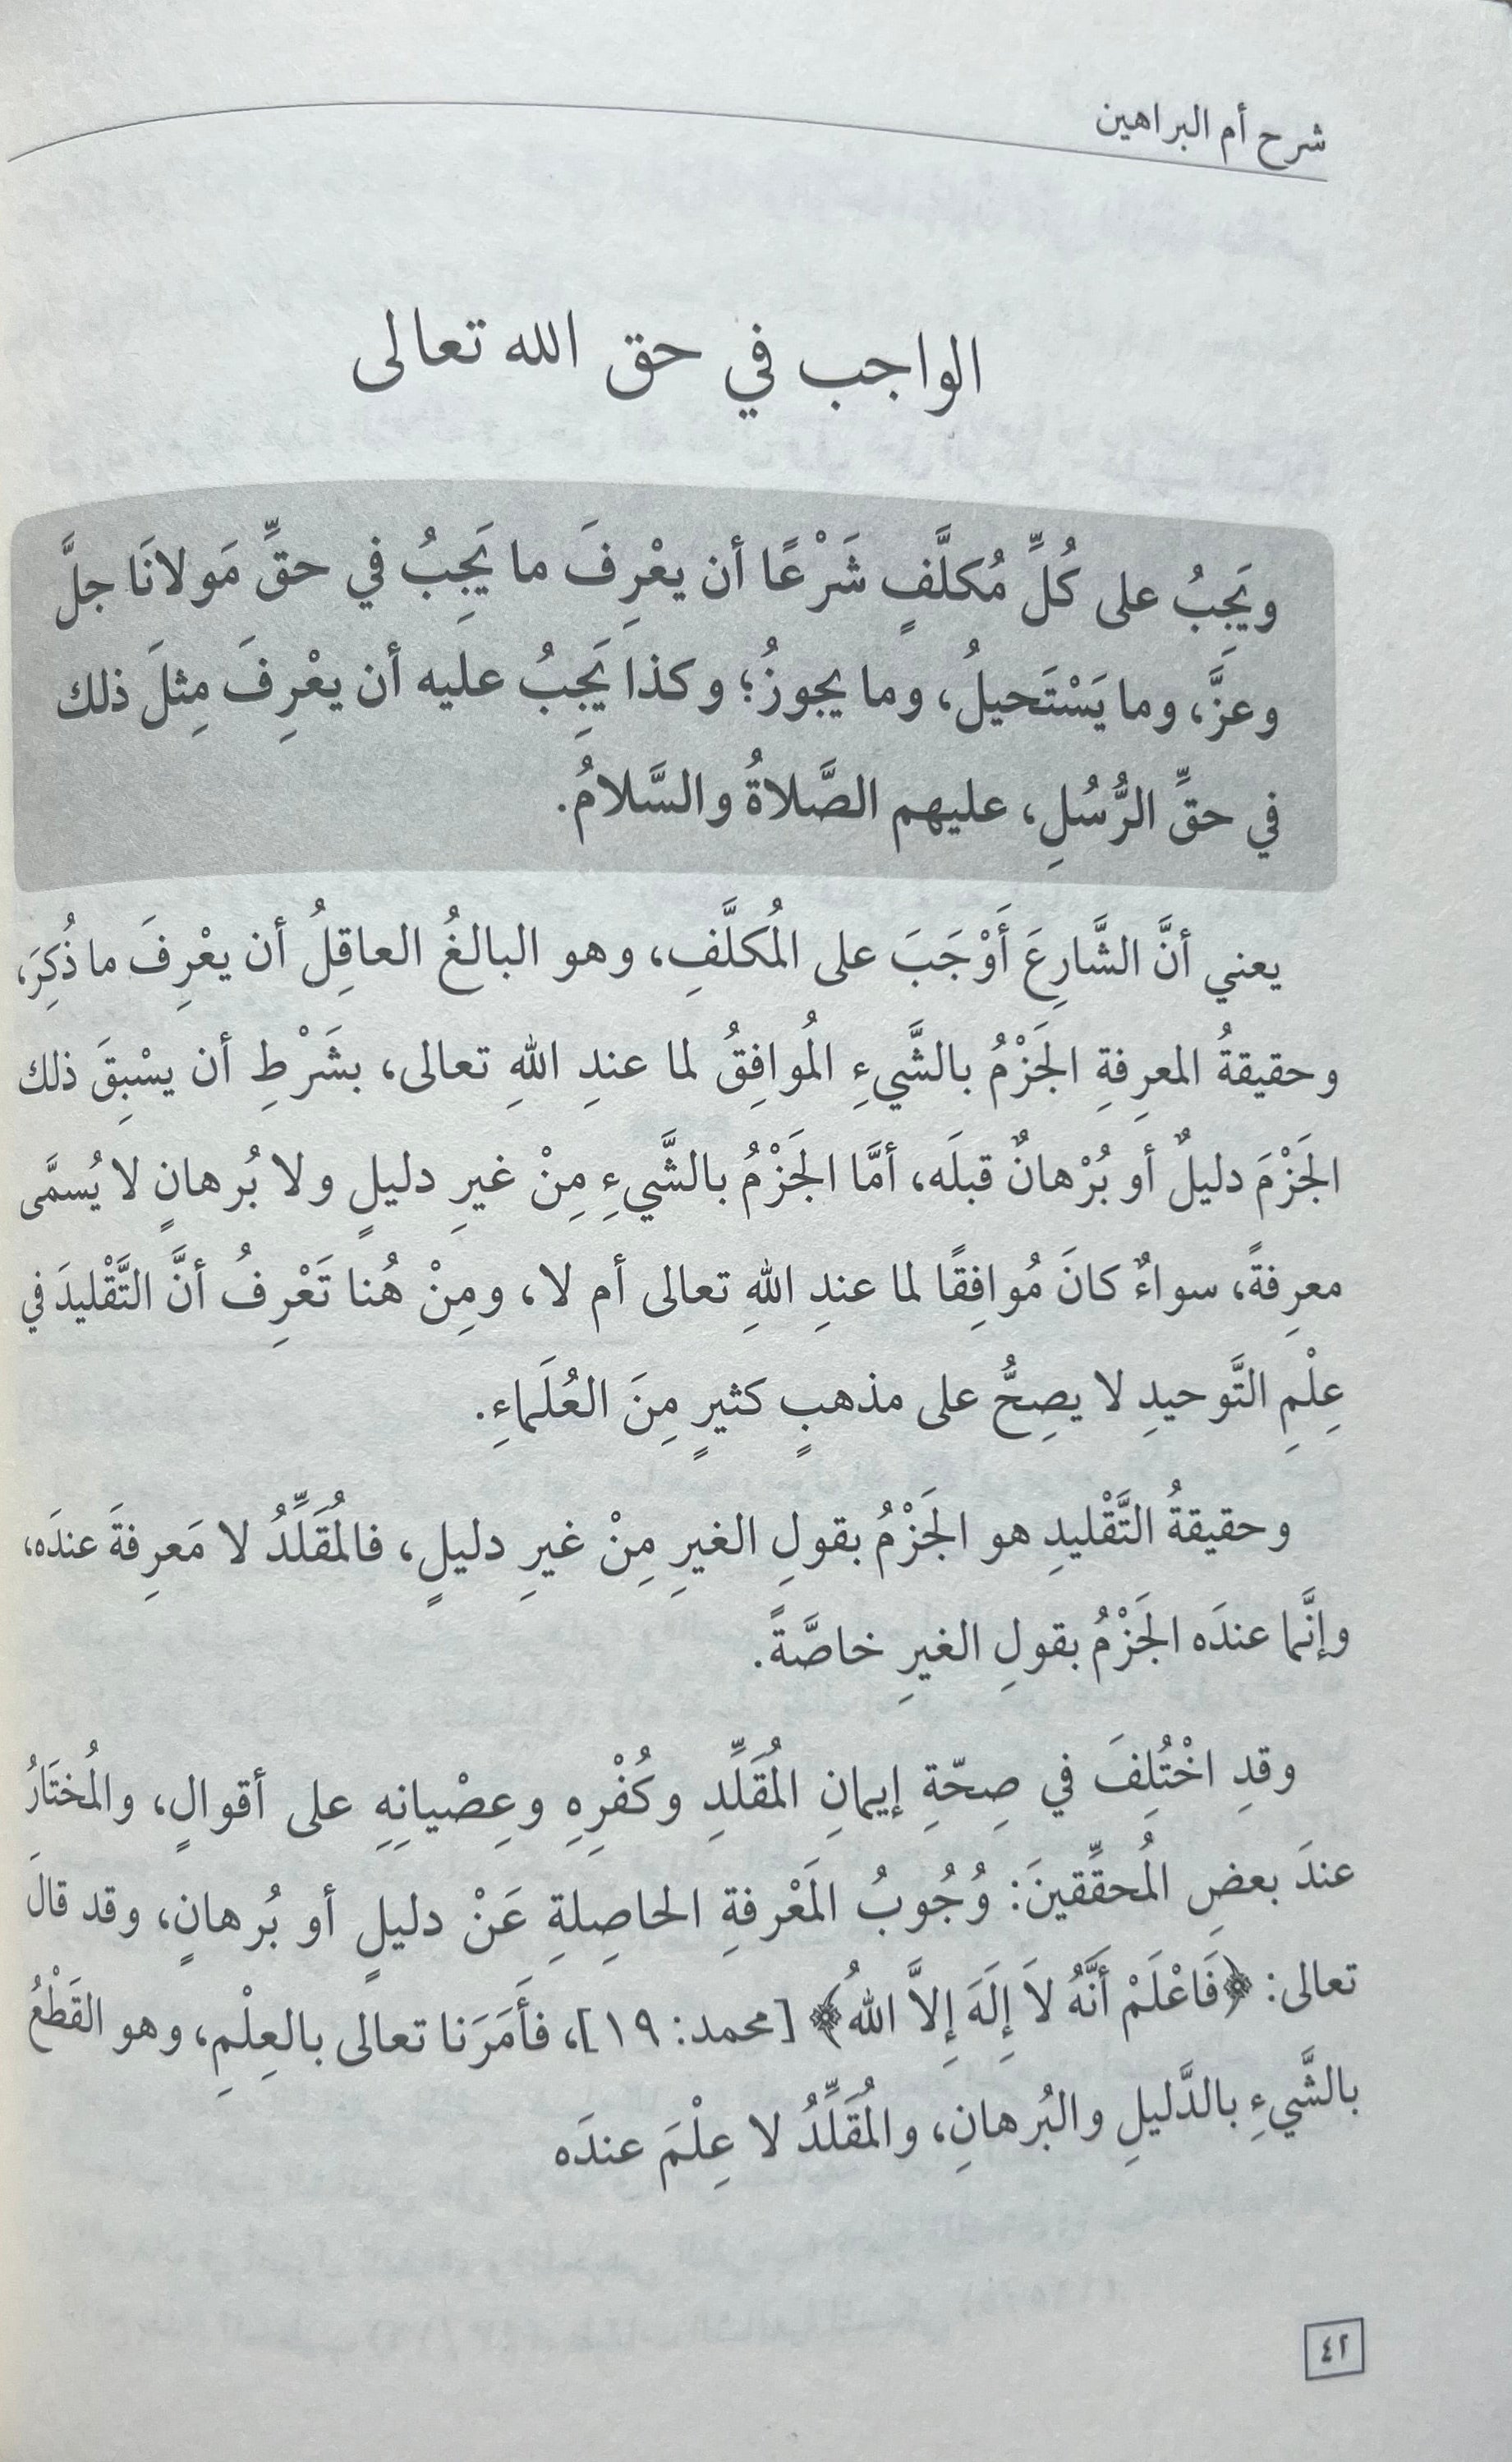 شرح أم البراهين
الواجب في حق الله تعالى
ويَجِبُ على كُلِّ مُكلَّفٍ شَرْعًا أن يعْرِفَ ما يَجِبُ في حقِّ مَولانَا جلَّ
وعزَّ، وما يَسْتَحيلُ، وما يجوزُ؛ وكذا يَجِبُ عليه أن يعْرِفَ مِثلَ ذلك
في حقِّ الرُّسُلِ، عليهم الصَّلاةُ والسَّلامُ.
يعني أنَّ الشَّارِعَ أَوْجَبَ على المُكلَّفِ، وهو البالغُ العاقِلُ أن يعْرِفَ ما ذُكِرَ،
وحقيقةُ المعرِفةِ الجَزْمُ بالشَّيءِ المُوافِقُ لما عندِ اللهِ تعالى، بشَرْطِ أن يسْبِقَ ذلك
الجَزْمَ دليلٌ أو بُرْهانٌ قبلَه، أمَّا الجَزْمُ بالشَّيءِ مِنْ غيرِ دليلٍ ولا بُرهانٍ لا يُسمَّى
معرِفةً، سواءٌ كانَ مُوافِقًا لما عندِ اللهِ تعالى أم لا، ومِنْ هُنا تَعْرِفُ أنَّ التَّقْليدَ في
عِلْمِ التَّوحيدِ لا يصِحُّ على مذهبٍ كثيرٍ مِنَ العُلَماءِ.
وحقيقةُ التَّقْليدِ هو الجَزْمُ بقولِ الغيرِ مِنْ غيرِ دليلٍ، فالمُقَلِّدُ لا مَعرِفةَ عندَه،
وإنَّما عندَه الجَزْمُ بقولِ الغيرِ خاصَّةً.
وقدِ اخْتُلِفَ في صِحّةِ إيمانِ المُقَلِّدِ وكُفْرِهِ وعِصْيانِهِ على أقوالٍ، والمُختَارُ
عندَ بعضِ المُحقِّقينَ: وُجُوبُ المَعْرفةِ الحاصِلةِ عَنْ دليلٍ أو بُرهانٍ، وقد قالَ
تعالى: ﴿فَاعْلَمْ أَنَّهُ لاَ إِلَهَ إِلاَّ اللهُ﴾ [محمد: ١٩]، فأَمَرَنا تعالى بالعِلْمِ، وهو القَطْعُ
بالشَّيءِ بالدَّليلِ والبُرهانِ، والمُقَلِّدُ لا عِلْمَ عندَه
٤٢